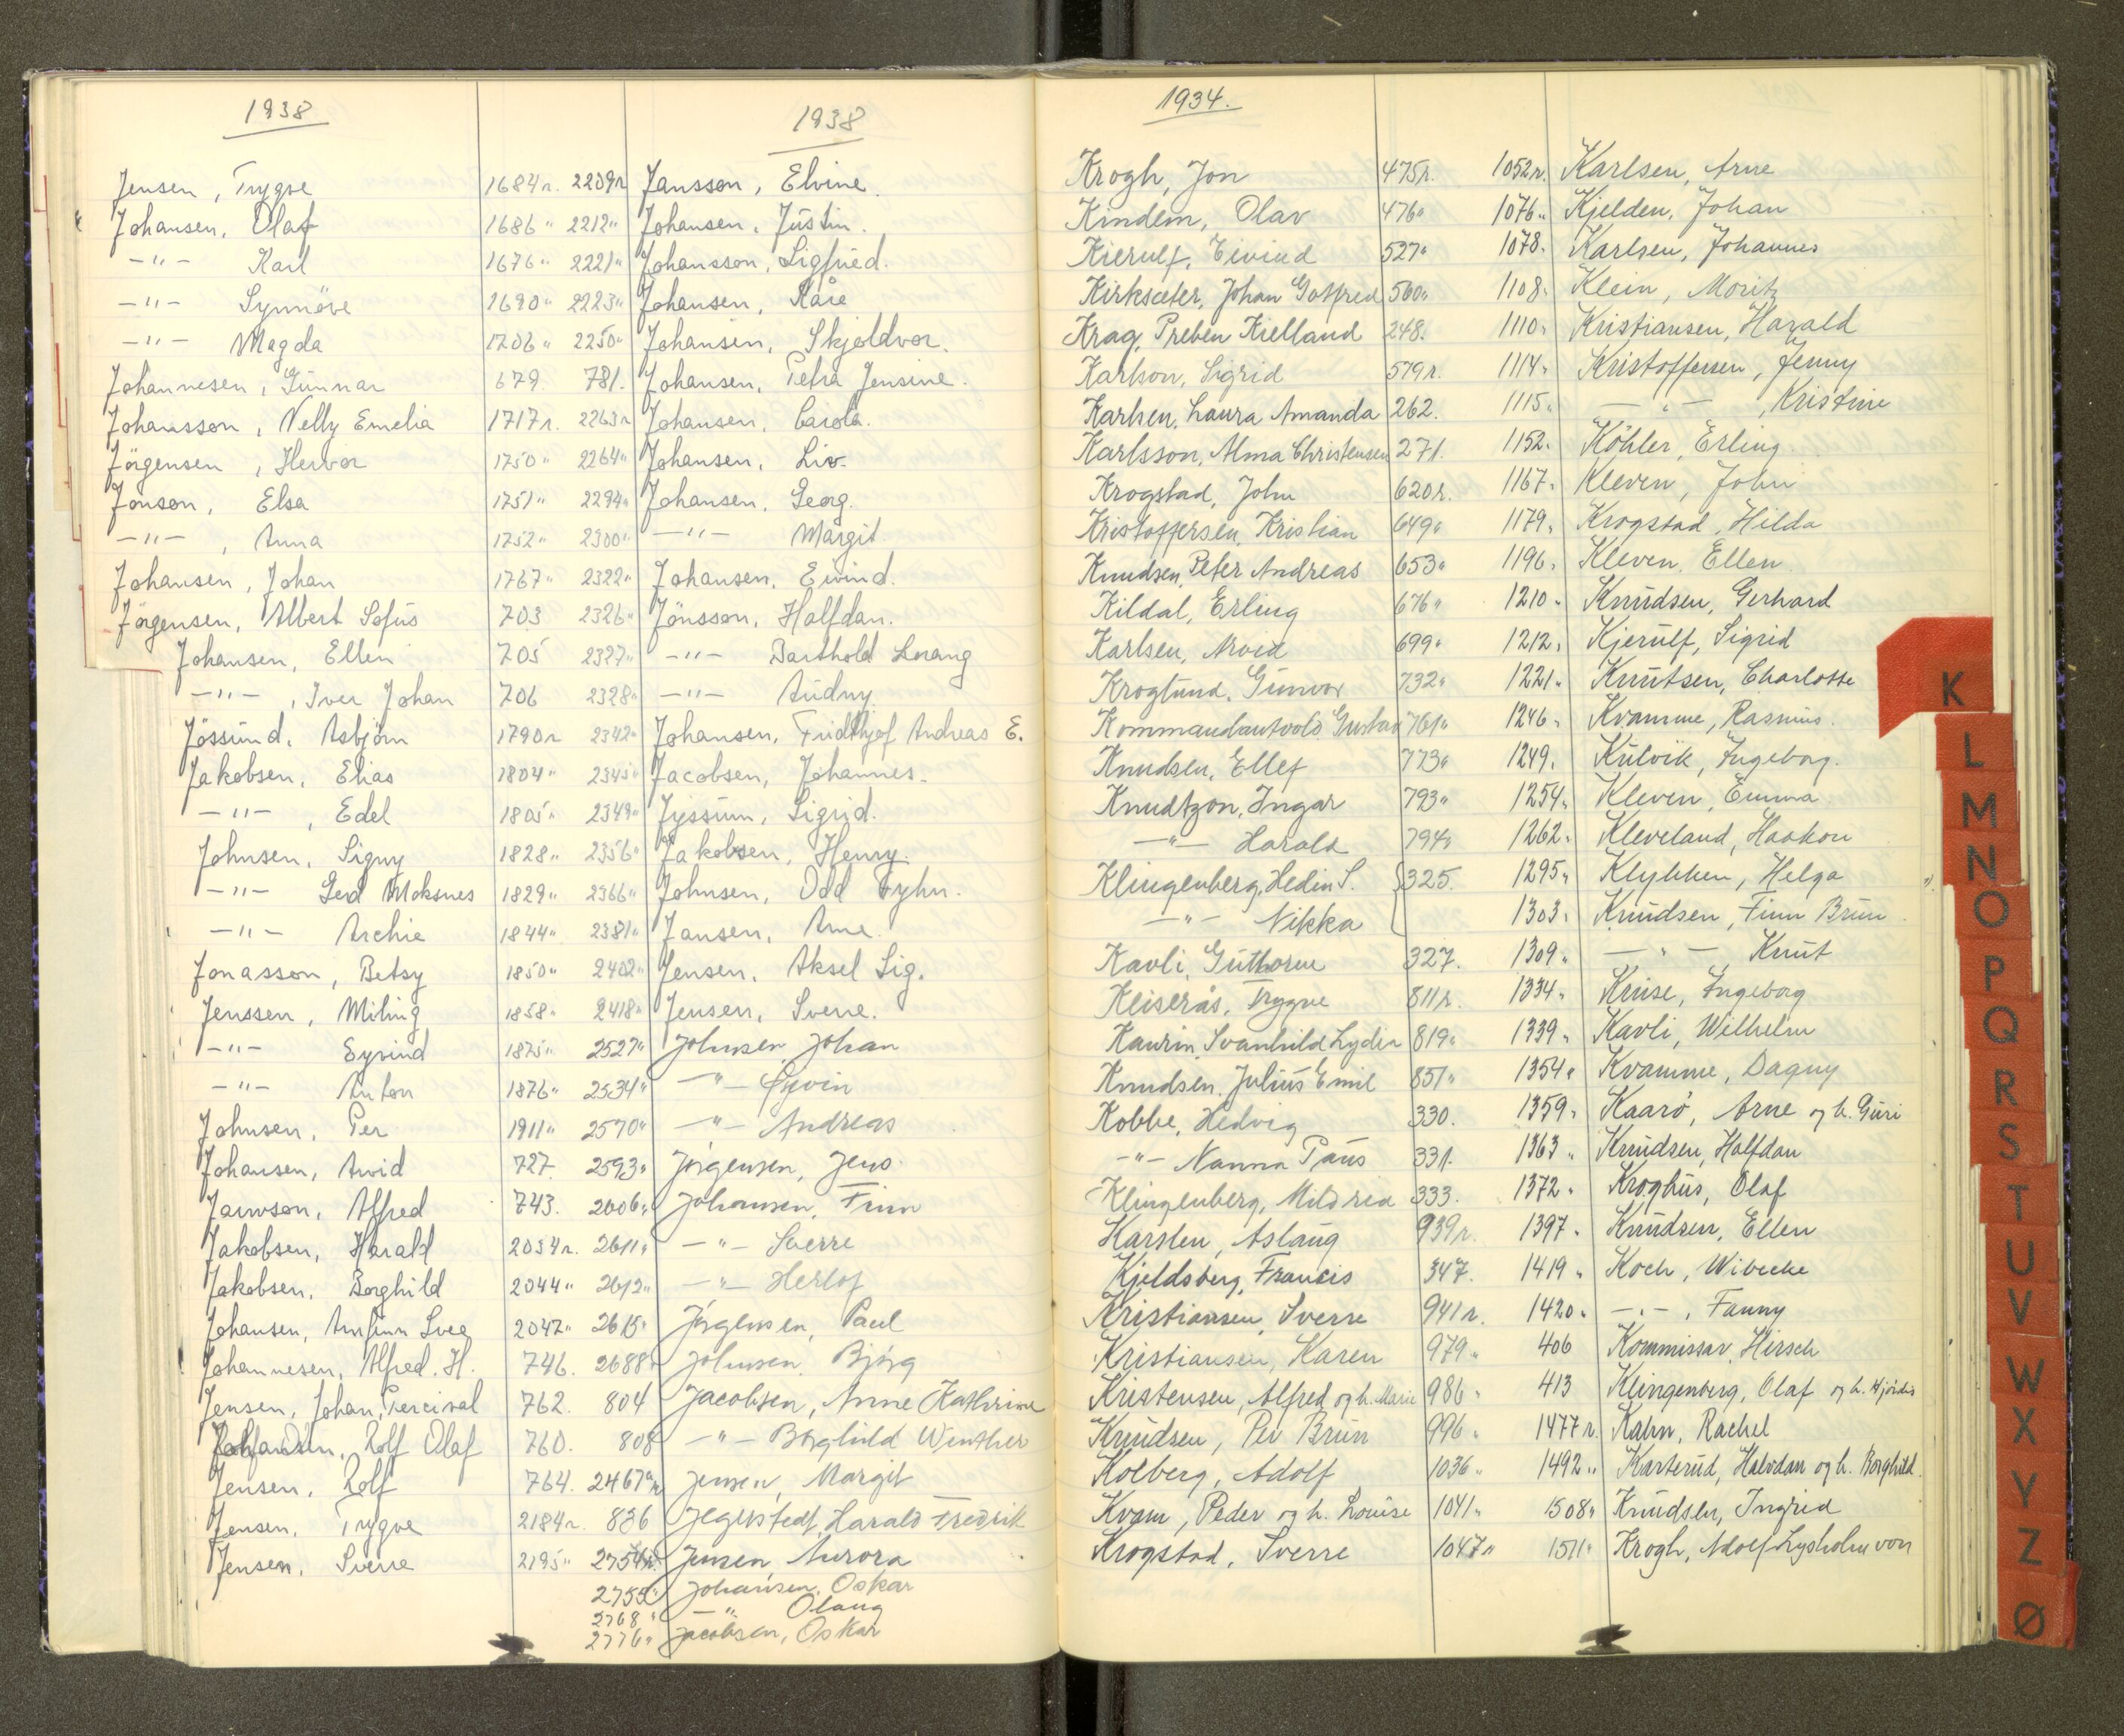 1938
Jensen, Trygve 1684 r.
Johansen, Olaf 1686 "
-"- Karl 1676 "
-"- Synnöve 1690 "
-"- Magda 1706 "
Johannesen, Gunnar 679.
Johansson, Nelly Emelia 1717 r.
Jörgensen, Hervor 1750 "
Jonson, Elsa 1751 "
-"-, Anna 1752 "
Johansen, Johan 1767 "
Jörgensen, Albert Sofus 703
Johansen, Ellen 705
-"-, Iver Johan 706
Jössund, Asbjörn 1790 r
Jakobsen, Elias 1804 "
-"-, Edel 1805 "
Johnsen, Signy 1828 "
-"- Gerd Moksnes 1829 "
-"- Archie 1844 "
Jonasson, Betsy 1850 "
Jenssen, Miling 1858 "
-"- Eyvind 1875 "
-"- Anton 1876 "
Johnsen, Per 1911 "
Johansen, Arvid 727.
Alfred 743.
Jakobsen, Harald 2034 r.
Jakobsen, Borghild 2044 "
Johansen, Svea 2047 "
Johannesen, Alfred. H. 746.
Jensen, Johan Percival 762.
Johansen, Rolf Olaf 760.
Jensen, Rolf 764.
Jensen, Trygve 2184 r.
Jensen, Sverre 2195 "
1938
2209 r Jansson, Elvine.
2212 " Johansen, Justin.
2221 " Johansson, Sigfried.
2223 " Johansen, Kåre
2250 " Johansen, Skjoldvor.
781. Johansen, Petra Jensine.
2263 r Johansen, Carola.
2264 " Johansen, Liv.
2294 " Johansen, Georg.
2300 " -"- Margit.
2322 " Johansen, Eivind.
2326 " Jönsson, Halfdan.
2327 " -"- Barthold
2328 " -"- Audny.
2342 " Johansen, Fridthjof Andreas E.
2345 " Jacobsen, Johannes.
2349 " Jyssum, Sigrid.
2356 " Jakobsen, Henry.
2366 " Johnsen, Odd Fyhn.
2381 " Jansen, Arne.
2402 " Jensen, Aksel Sig.
2418 " Jensen, Sverre.
2527 " Johnsen, Johan
2534 " -"- Øyvin
2570 " -"- Andreas
2593 " Jörgensen, Jens.
2606 " Johansen, Finn
2611 " -"- Sverre
2612 " -"- Herlof
2615 " Jörgensen, Paul
2688 " Johnsen, Bjørg
804 Jacobsen, Anne Kathrine
808 -"- Borghild Winther
2467 r Jensen, Margit
836 Jegerstedt, Harald Fredrik
2754 r. Jensen Aurora
2755 " Johansen, Oskar
2768 " -"- Olaug
2776 " Jacobsen, Oskar
1934.
Krogh, Jon 475 r.
Kindem, Olav 476 "
Kierulf, Eivind 527 "
Kirksæter, Johan Gotfred 560 "
Krag, Preben Kielland 248.
Karlson, Sigrid 579 r.
Karlsen, Laura Amanda 262.
Karlsson, Alma Christensen 271.
Krogstad, John 620 r.
Kristoffersen, Kristian 649 "
Knudsen, Peter Andreas 653 "
Kildal, Erling 676 "
Karlsen, Arvid 699 "
Kroglund, Gunvor 732 "
Kommandantvold, Gustav 761 "
Knudsen, Ellef 773 "
Knudtzon, Ingar 793 "
-"- Harald 794 "
Klingenberg, Hedin S. 325.
-"- Nikka
Kavli, Guthorm 327.
Kleiserås, Trygve 811 r.
Kaurin, Svanhild Lydia 819 "
Knudsen, Julius Emil 851 "
Kobbe, Hedvig 330.
-"- Nanna Paus 331.
Klingenberg, Mildrid 333.
Karsten, Aslaug 939 r.
Kjeldsberg, Francis 347.
Kristiansen, Sverre 941 r.
Kristiansen, Karen 979 "
Kristensen, Alfred og h. Marie 986 "
Knudsen, Per Brun 996 "
Kolberg, Adolf 1036 "
Kvam, Peder og h. Louise 1041 "
Krogstad, Sverre 1047 "
1052 r. Karlsen, Arne
1076 " Kjelden, Johan
1078 " Karlsen, Johannes
1108 " Klein, Moritz
1110 " Kristiansen, Harald
1114 " Kristoffersen, Jenny
1115 " -"-, Kristine
1152 " Köhler, Erling.
1167 " Kleven, John
1179 " Krogstad, Hilda
1196 " Kleven, Ellen
1210 " Knudsen, Gerhard
1212 " Kjerulf, Sigrid
1221 " Knutsen, Charlotte
1246 " Kvamme, Rasmus.
1249 " Kulvik, Ingeborg.
1254 " Kleven, Emma
1262 " Kleveland, Haakon
1295 " Klykken, Helga
1303 " Knudsen, Finn Brun
1309 " -"- Knut
1334 " Kruse, Ingeborg
1339 " Kavli, Wilhelm
1354 " Kvamme, Dagny
1359 " Kaarö, Arne og h. Guri
1363 " Knudsen, Halfdan
1372 " Kroghus, Olaf
1397 " Knudsen, Ellen
1419 " Koch, Wibecke
1420 " -"-, Fanny
406 Kommissar, Hirsch
413 Klingenberg, Olaf og h. Hjördis
1477 r. Kahn, Rachel
1492 " Karterud, Halvdan og h. Borghild.
1508 " Knudsen, Ingrid
1511 " Krogh, Adolf Lysholm von
K
L
M
N
O
P
Q
R
S
T
U
V
W
X
Y
Z
Ø